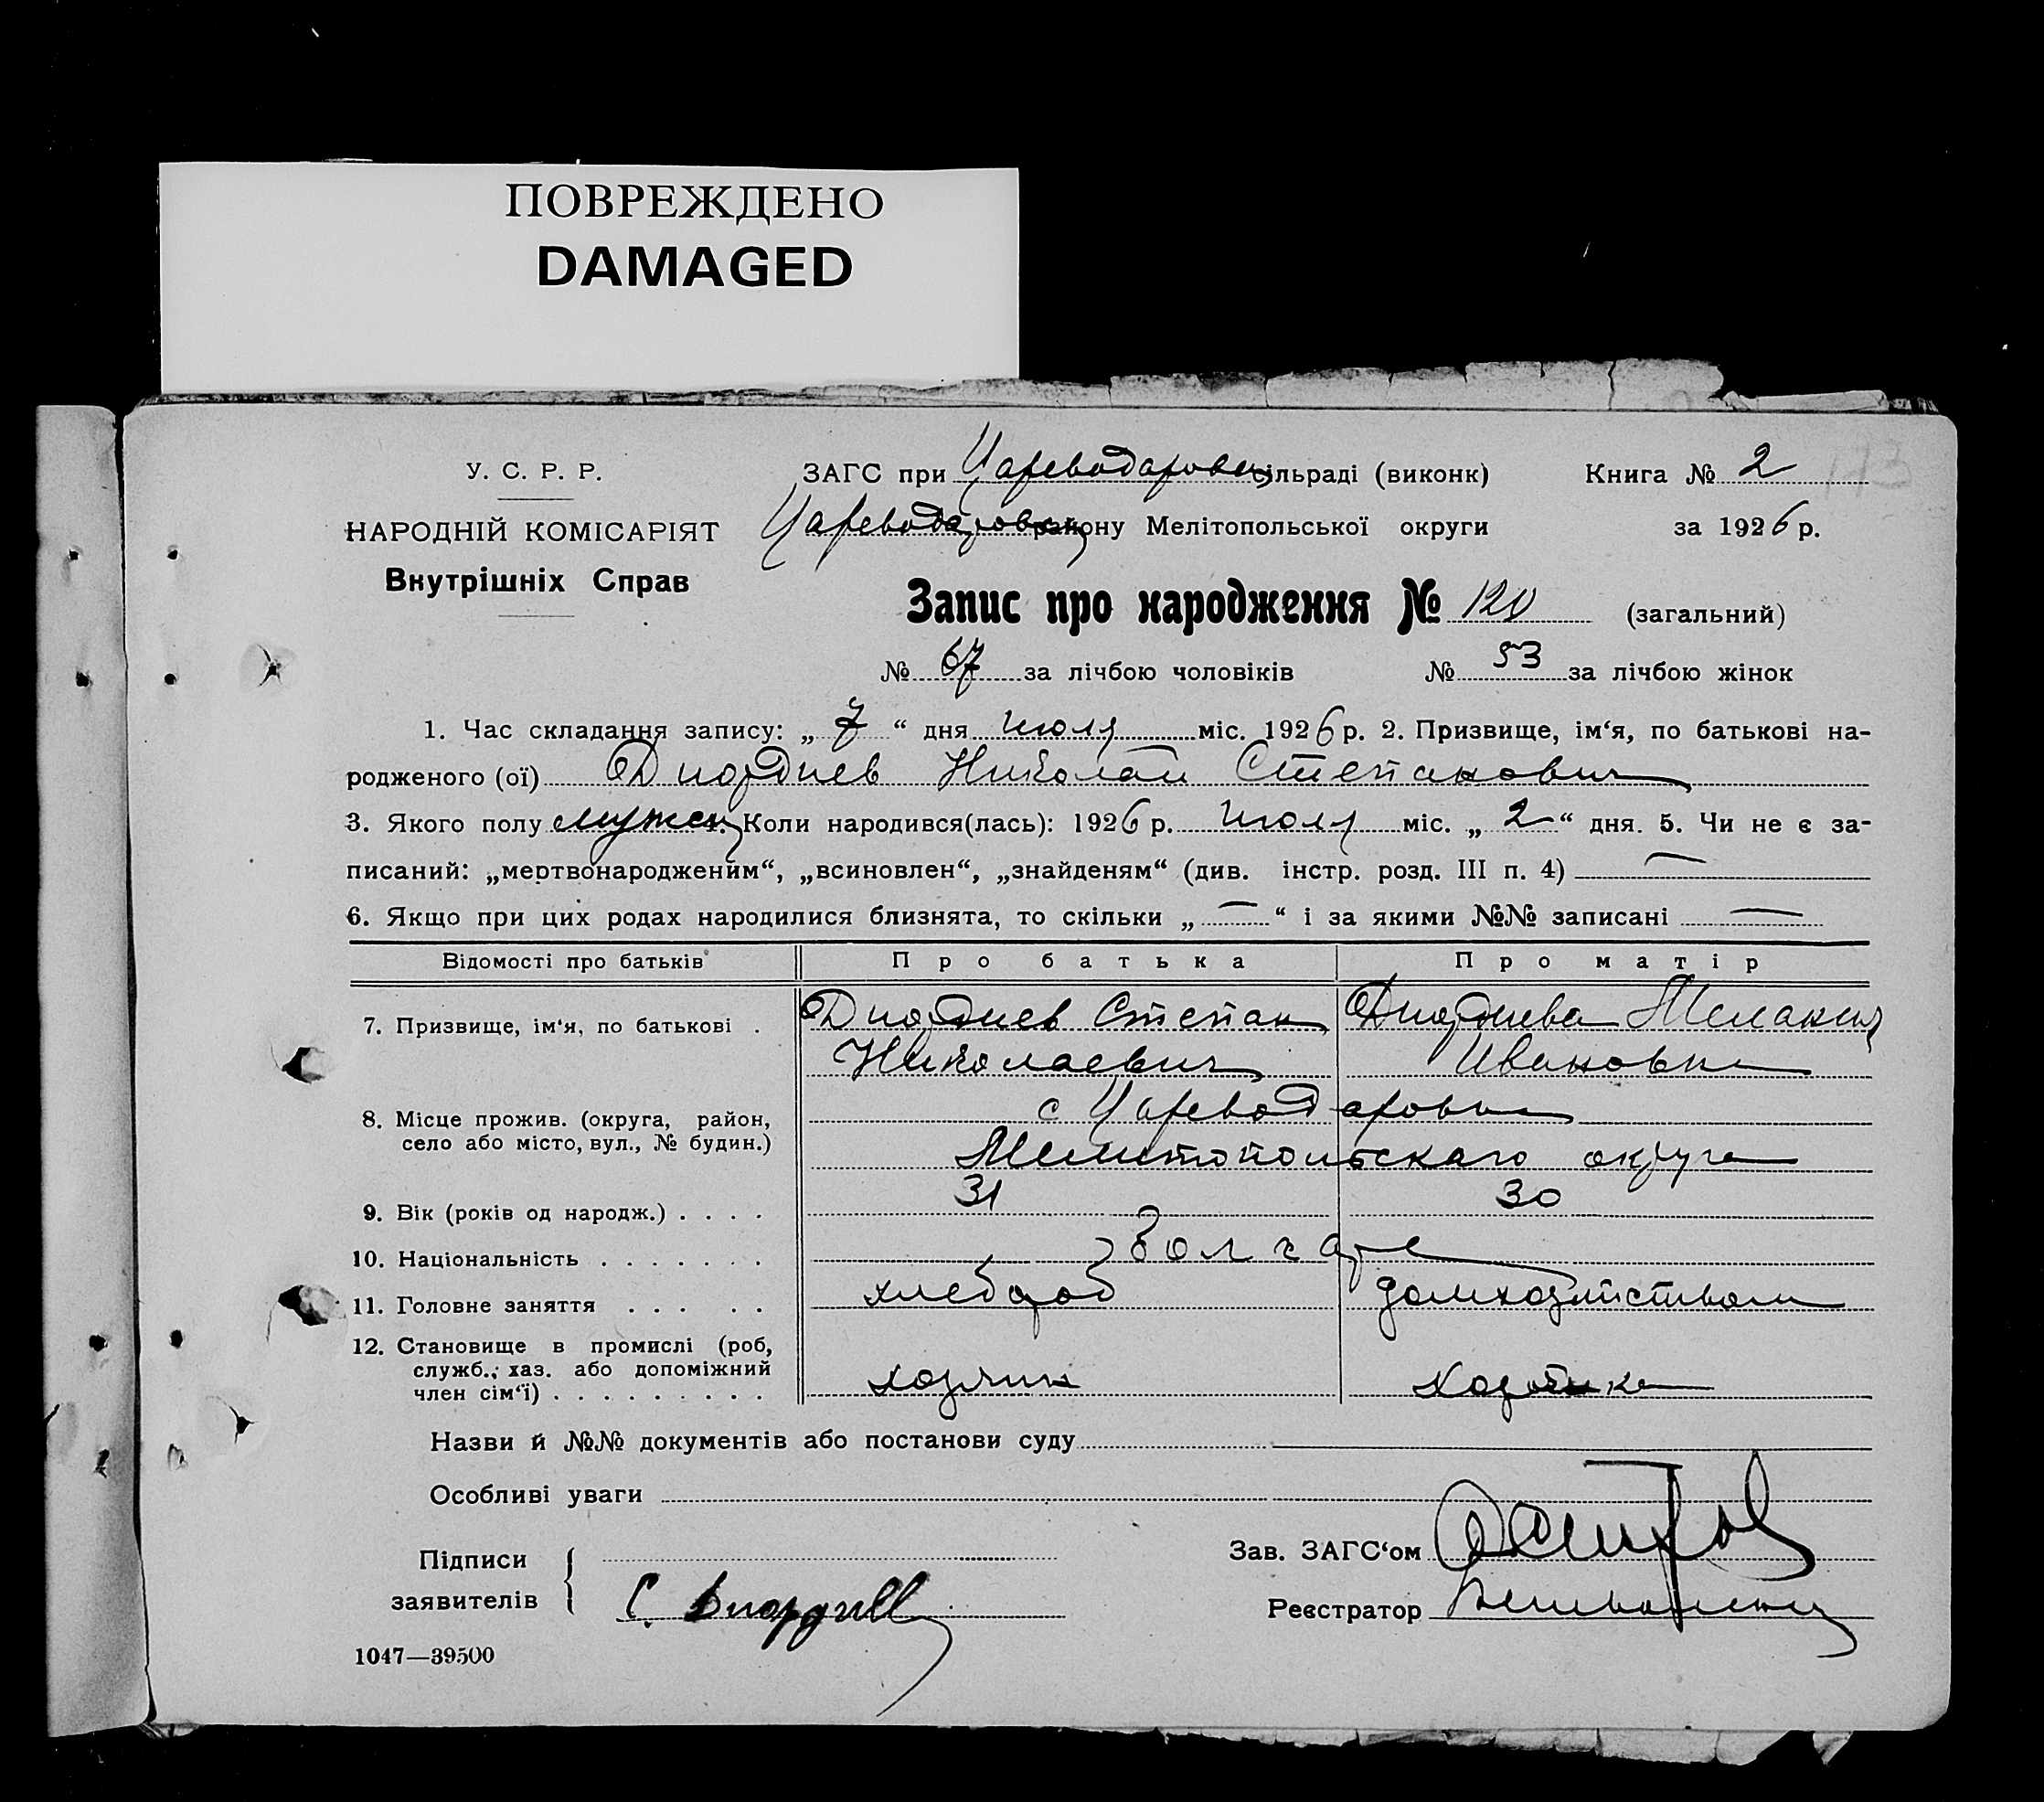 ПОВРЕЖДЕНО
DAMAGED
У. С. Р. Р.
НАРОДНІЙ КОМІСАРІЯТ
Внутрішніх Справ
ЗАГС при Цареводаровск сільраді (виконк) Книга № 2
173
Цареводаровск району Мелітопольської округи за 1926 р.
Запис про народження № 120 (загальний)
№ 67 за лічбою чоловіків № 53 за лічбою жінок
1. Час складання запису: „ 7 “ дня июля міс. 1926 р. 2. Призвище, ім‘я, по батькові на-
родженого (ої) Диордиев Николай Степанович
3. Якого полу мужск 4. Коли народився(лась): 1926 р. июля міс. „ 2 “ дня. 5. Чи не є за-
писаний: „мертвонародженим“, „всиновлен“, „знайденям“ (див. інстр. розд. III п. 4) —
6. Якщо при цих родах народилися близнята, то скільки „ — “ і за якими №№ записані —
Відомості про батьків Про батька Про матір
7. Призвище, ім‘я, по батькові . Диордиев Степан Диордиева Мелания
Николаевич Ивановна
8. Місце прожив. (округа, район, с Цареводаровка
село або місто, вул., № будин.) Мелитопольскаго округа
9. Вік (років од народж.) . . . . 31 30
10. Національність . . . . . . . Болгаре
11. Головне заняття . . . . . хлебороб домхозяйством
12. Становище в промислі (роб,
служб.; хаз. або допоміжний
член сім‘ї) . . . . . . . . . хозяин хозяйка
Назви й №№ документів або постанови суду
Особливі уваги
Підписи
заявителів
С. Диордиев
Зав. ЗАГС‘ом
Реєстратор
1047—39500